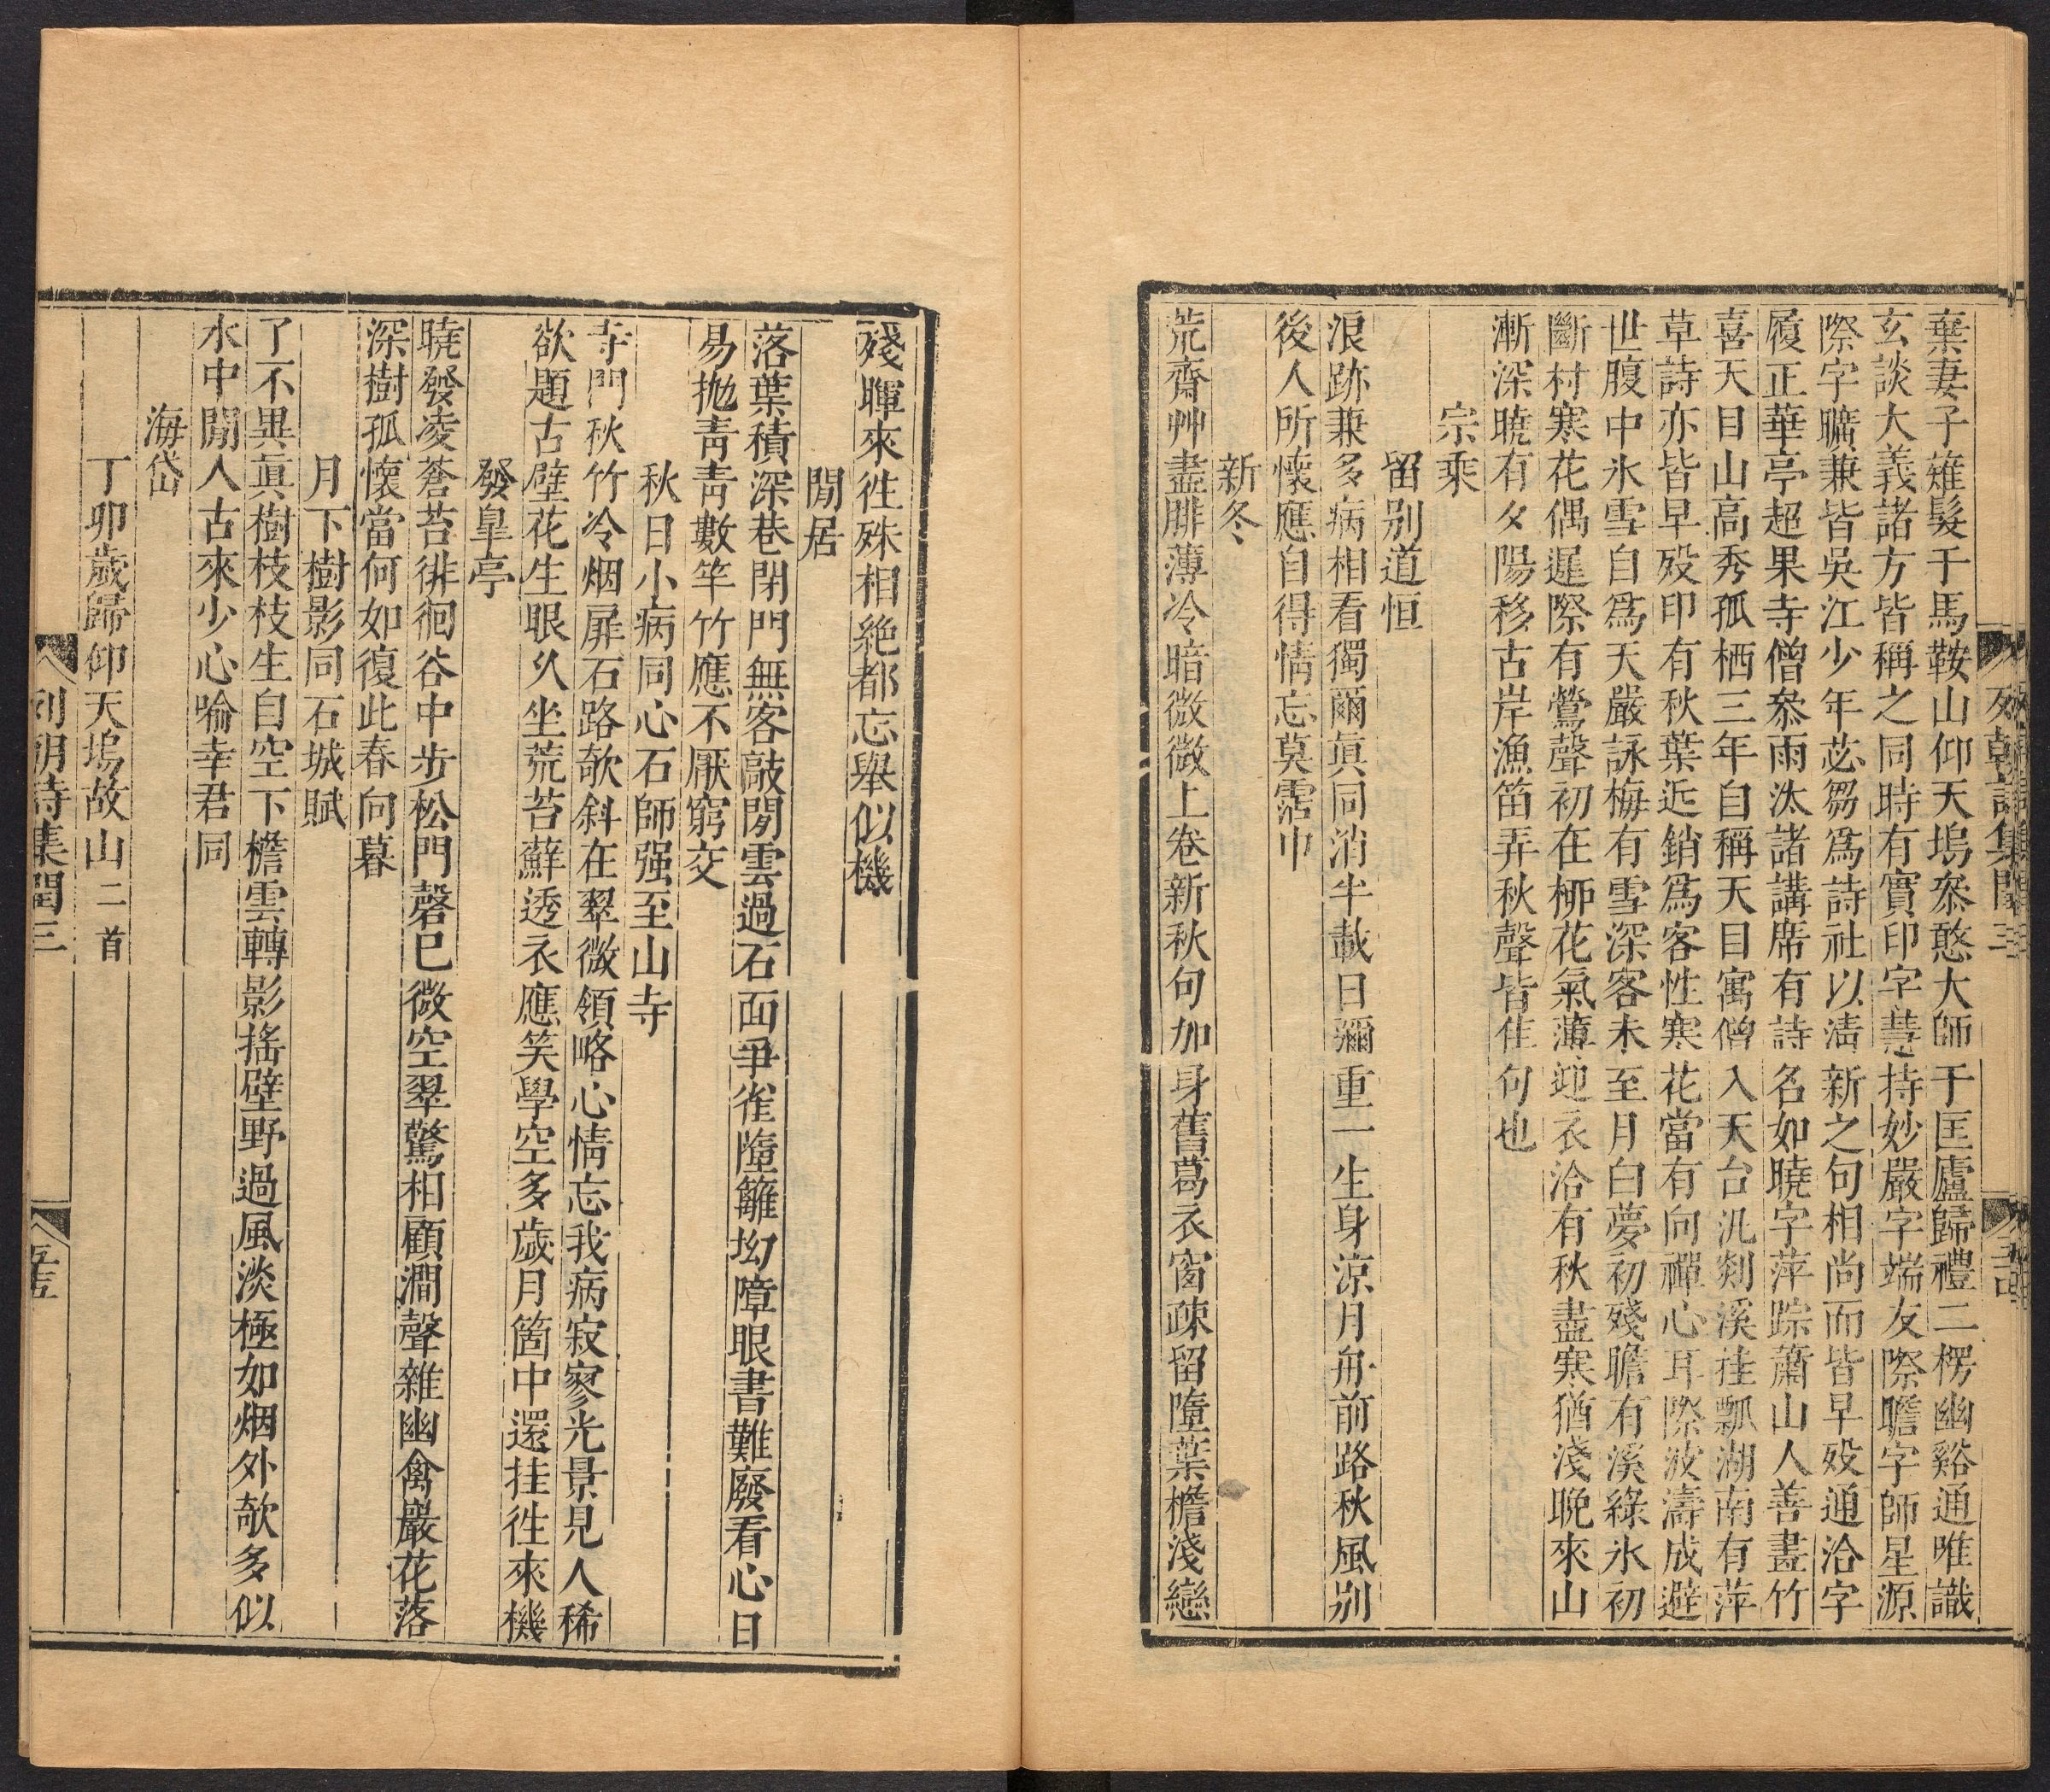 列朝詩集閏三
棄妻子薙髮于馬鞍山仰天塢叅憨大師于匡廬歸禮二楞幽谿通唯識
玄談大義諸方皆稱之同時有實印字慧持妙嚴字端友際瞻字師星源
際字曠兼皆吳江少年苾芻爲詩社以淸新之句相尚而皆早歿通洽字
履正華亭超果寺僧叅雨汰諸講席有詩名如曉字萍踪蕭山人善畫竹
喜天目山高秀孤栖三年自稱天目寓僧入天台汎剡溪挂瓢湖南有萍
草詩亦皆早歿印有秋葉近銷爲客性寒花當有向禪心耳際波濤成避
世腹中氷雪自爲天嚴詠梅有雪深客未至月白夢初殘瞻有溪綠氷初
斷村寒花偶遲際有鶯聲初在栁花氣薄迎衣洽有秋盡寒猶淺晚來山
漸深曉有夕陽移古岸漁笛弄秋聲皆佳句也
宗乘
留别道恒
浪跡兼多病相看獨爾眞同消半載日彌重一生身涼月舟前路秋風别
後人所懷應自得情忘莫霑巾
新冬
荒齋艸盡腓薄冷暗微微上卷新秋句加身舊葛衣窗疎留墮葉檐淺戀
殘暉來徃殊相絶都忘舉似機
閒居
落葉積深巷閉門無客敲閒雲過石面爭雀墮籬坳障眼書難廢看心日
易拋靑靑數竿竹應不厭窮交
秋日小病同心石師强至山寺
寺門秋竹冷烟屏石路欹斜在翠微領略心情忘我病寂寥光景見人稀
欲題古壁花生眼久坐荒苔蘚透衣應笑學空多歲月箇中還挂徃來機
發皐亭
曉發凌蒼苔徘徊谷中步松門磬已微空翠驚相顧澗聲雜幽禽巖花落
深樹孤懷當何如復此春向暮
月下樹影同石城賦
了不異眞樹枝枝生自空下檐雲轉影搖壁野過風淡極如烟外欹多似
水中閒人古來少心喻幸君同
海岱
丁卯歲歸仰天塢故山二首
列朝詩集閏三